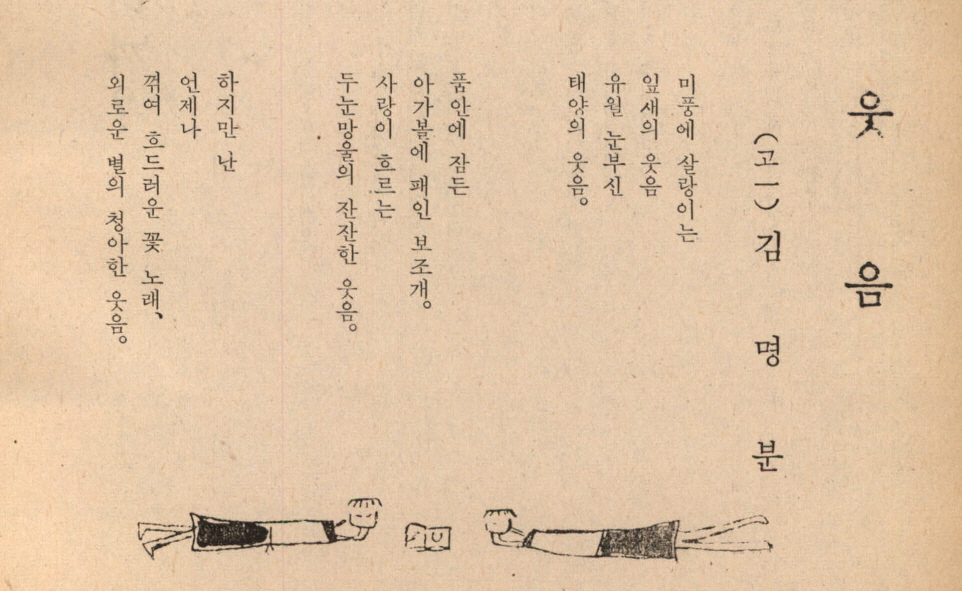 웃음
(고一) 김명분
미풍에 살랑이는
잎새의 웃음
유월 눈부신
태양의 웃음。
품안에 잠든
아가볼에 패인 보조개。
사랑이 흐르는
두눈망울의 잔잔한 웃음。
하지만 난
언제나
꺾여 흐드러운 꽃 노래、
외로운 별의 청아한 웃음。